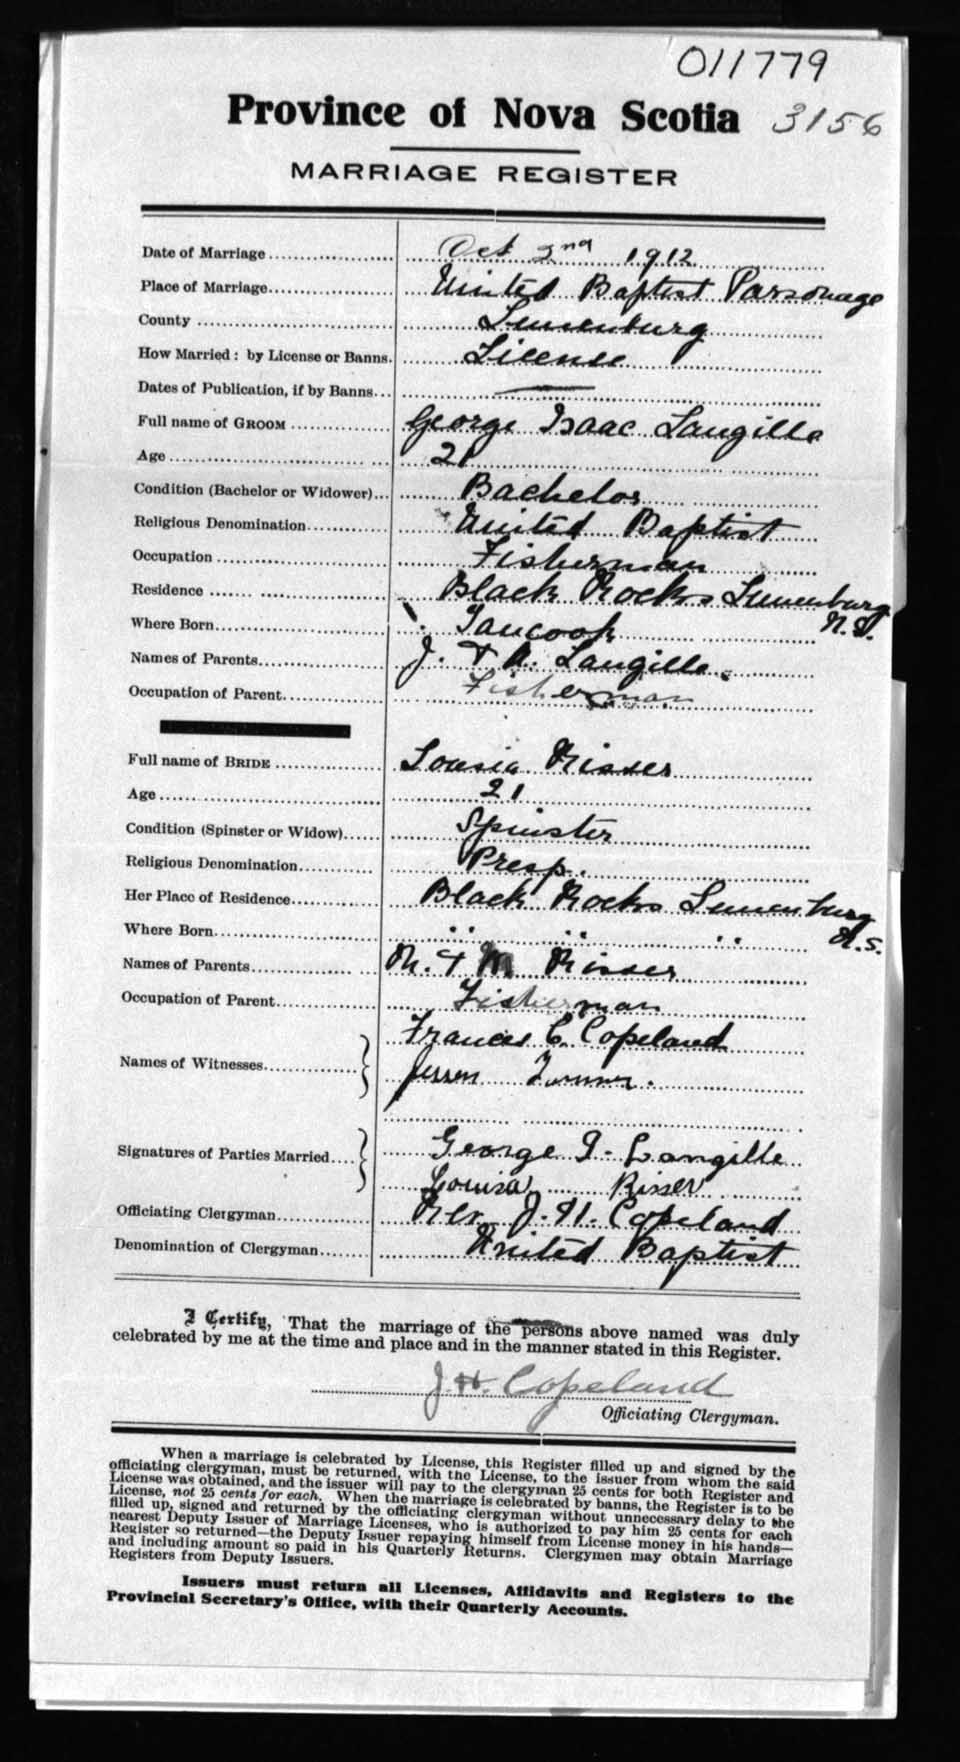 011779
Province of Nova Scotia 3156
MARRIAGE REGISTER
Date of Marriage Oct 2nd 1912
Place of Marriage United Baptist Parsonage
County Lunenburg
How Married: by License or Banns. License
Dates of Publication, if by Banns —
Full name of GROOM George Isaac Langille
Age 21
Condition (Bachelor or Widower) Bachelor
Religious Denomination United Baptist
Occupation Fisherman
Residence Black Rocks Lunenburg
N.S.
Where Born Tancook
Names of Parents J. & A. Langille
Occupation of Parent Fisherman
Full name of BRIDE Lousia Risser
Age 21
Condition (Spinster or Widow) Spinster
Religious Denomination Presp.
Her Place of Residence Black Rocks Lunenburg
N.S.
Where Born " " "
Names of Parents R. & M Risser
Occupation of Parent Fisherman
Frances C. Copeland
Names of Witnesses
Signatures of Parties Married George I. Langille
Louisa Risser
Officiating Clergyman Rev. J. H. Copeland
Denomination of Clergyman United Baptist
I Certify, That the marriage of the persons above named was duly
celebrated by me at the time and place and in the manner stated in this Register.
J. H. Copeland
Officiating Clergyman.
When a marriage is celebrated by License, this Register filled up and signed by the
officiating clergyman, must be returned, with the License, to the issuer from whom the said
License was obtained, and the issuer will pay to the clergyman 25 cents for both Register and
License, not 25 cents for each. When the marriage is celebrated by banns, the Register is to be
filled up, signed and returned by the officiating clergyman without unnecessary delay to the
nearest Deputy Issuer of Marriage Licenses, who is authorized to pay him 25 cents for each
Register so returned—the Deputy Issuer repaying himself from License money in his hands—
and including amount so paid in his Quarterly Returns. Clergymen may obtain Marriage
Registers from Deputy Issuers.
Issuers must return all Licenses, Affidavits and Registers to the
Provincial Secretary's Office, with their Quarterly Accounts.